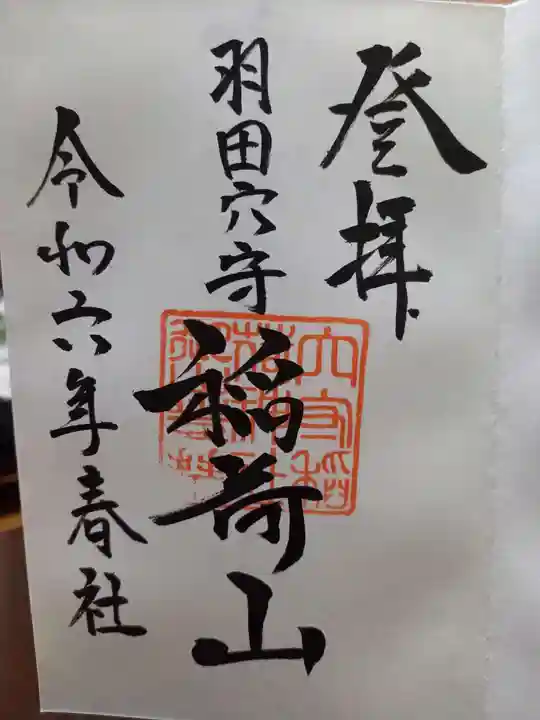 登拝
羽田穴守
稲荷山
令和六年春社